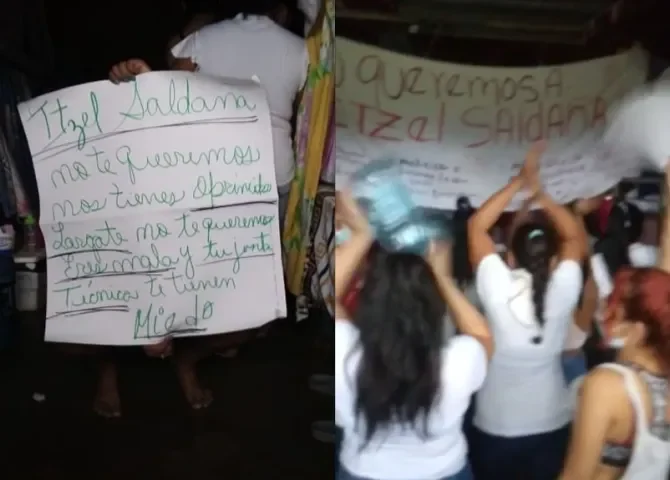 Itzel Saldana
no te queremos
nos tienes Oprimidas
Largate no te queremos
Eres mala y tu junta
Técnica te tienen
Miedo
QUEREMOS A
ITZel SALDAÑA